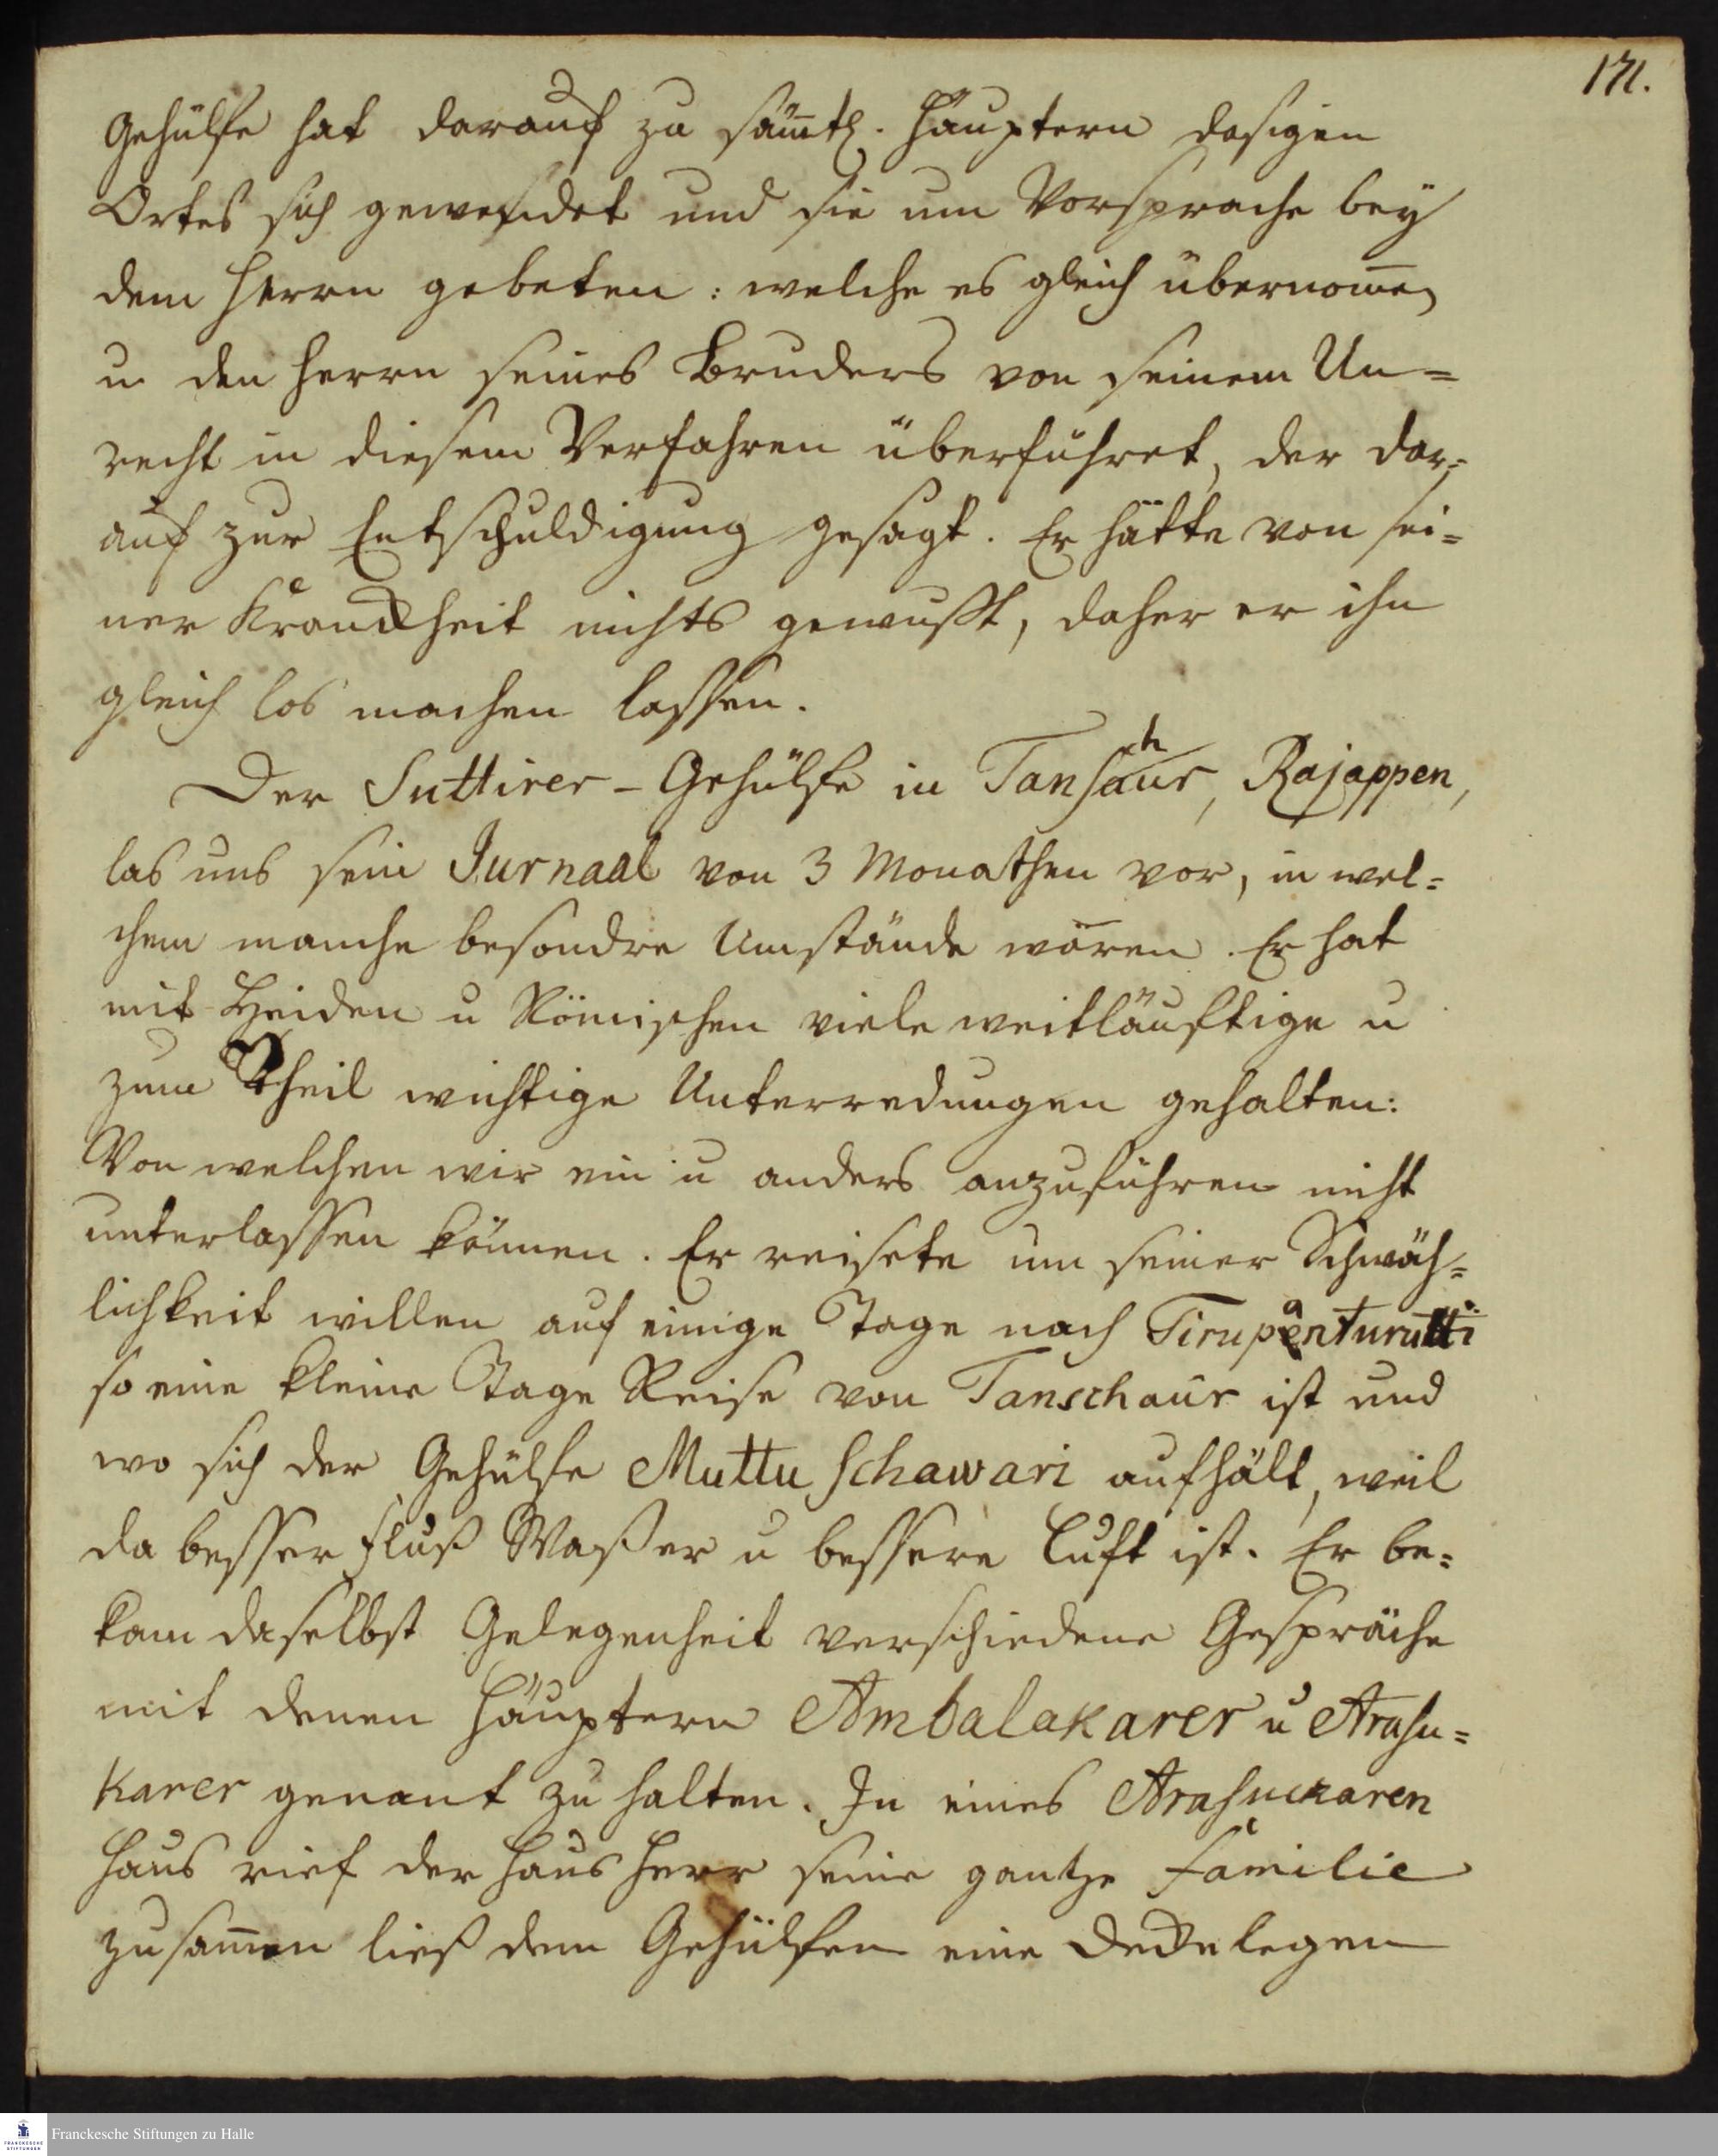 171.
Gehülfe hat darauf zu sämtl. Häuptern dasigen
Ortes sich gewendet und sie um Vorsprache bey
dem Herrn gebeten: welche es gleich übernom̅en
u den Herrn seines Bruders von seinem Un=
recht in diesem Verfahren überführet, der dar=
auf zur Entschuldigung gesagt. Er hätte von sei=
ner Kranckheit nichts gewusst, daher er ihn
gleich los machen lassen.
Der Suttirer-Gehülfe in Tanschaur, Rajappen,
las uns sein Jurnaal von 3 Monathen vor, in wel=
chem manche besondre Umstände waren. Er hat
mit Heiden u Römischen viele weitläuftige u
zum Theil wichtige Unterredungen gehalten:
Von welchen wir ein u anders anzuführen nicht
unterlassen können. Er reisete um seiner Schwäch=
lichkeit willen auf einige Tage nach Tirupanturutti
so eine kleine Tage Reise von Tanschaur ist und
wo sich der Gehülfe Muttu Schawari aufhält, weil
da besser Fluß Waßer u bessere Luft ist. Er be=
kam daselbst Gelegenheit verschiedene Gespräche
mit denen Häuptern Ambalakarer u Arasu=
karer genant zu halten. In eines Arasuckaren
Haus rief der Haus Herr seine gantze Familie
zusam̅en ließ dem Gehülfen eine Decke legen
Franckesche Stiftungen zu Halle